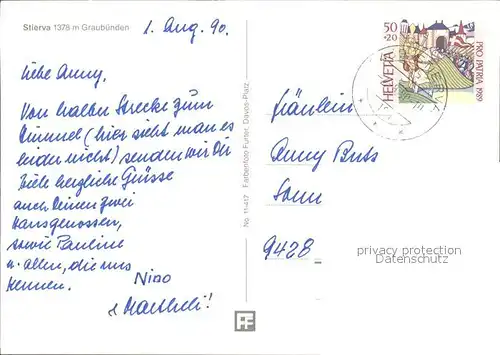 Stierva 1378 m Graubünden
1. Aug. 90.
Liebe Anny,
Von halber Strecke zum
Himmel (hier sieht man es
leider nicht) senden wir Dir
viele herzliche Grüsse
auch Deinen zwei
Hausgenossen,
sowie Pauline
u. allen, die uns
kennen.
Nino
&
No. 11-417 Farbenfoto Furter, Davos-Platz
50
+20
HELVETIA
PRO PATRIA 1989
Fräulein
Anny
9428
privacy protection
Datenschutz